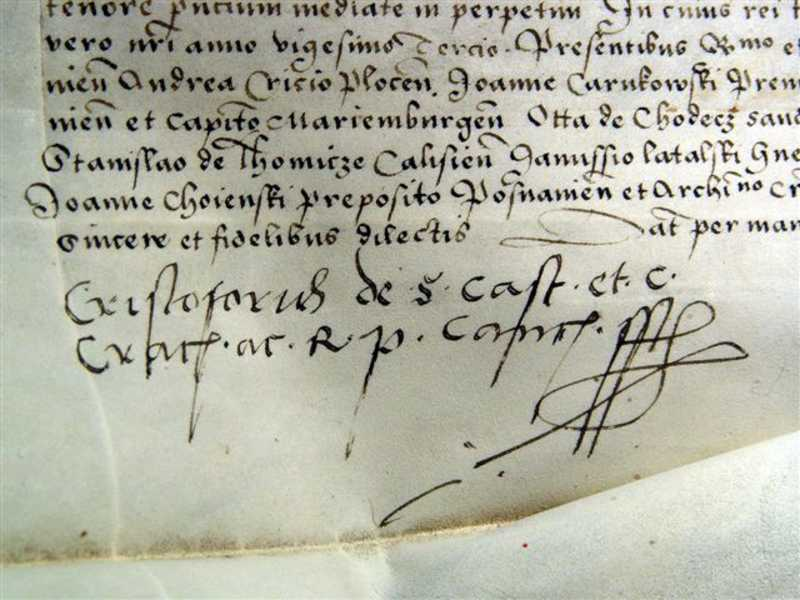 tenore pn̄tium mediate in perpetuū In cuius rei t
vero nr̄i anno vigesimo Tercio. Presentibus Rmo et
nien̄ Andrea Cricio Plocen̄. Joanne Carnkowski Prem
nien̄ et Capitō Mariemburgen̄ Otta de Chodecz sand
Stanislao de Thomicze Calisien̄ Janussio latalski Gne
Joanne Choienski Preposito Posnanien̄ et Archino Cr
sincere et fidelibus dilectis Dat̄ per man
Cristoforus de S. Cast. et. C.
Crac. ac. R. p. Canc.